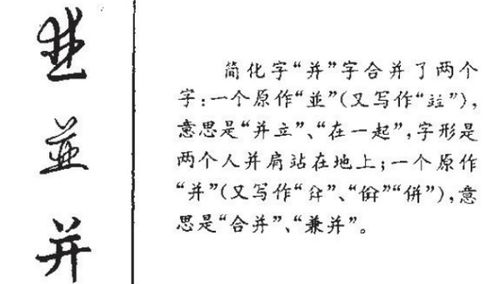 並
並
并
简化字“并”字合并了两个
字:一个原作“並”(又写作“竝”),
意思是“并立”、“在一起”,字形是
两个人并肩站在地上;一个原作
“并”(又写作“幷”、“倂”“併”),意
思是“合并”、“兼并”。